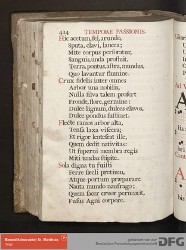 424 TEMPORE PASSIONIS.
Hic acetum, fel, arundo,
Sputa, clavi, lancea;
Mite corpus perforatur,
Sanguis, unda profluit,
Terra, pontus, astra, mundus,
Quo lavantur flumine.
Crux fidelis inter omnes
Arbor una nobilis,
Nulla silva talem profert
Fronde, flore, germine:
Dulce lignum, dulces clavos,
Dulce pondus sustinet.
Flecte ramos arbor alta,
Tensa laxa viscera;
Et rigor lentescat ille,
Quem dedit nativitas:
Ut superni membra regis
Miti tendas stipite.
Sola digna tu fuisti
Ferre sæcli pretium,
Atque portum præparare
Nauta mundo naufrago;
Quem sacer cruor perunxit,
Fusus Agni corpore.
DFG